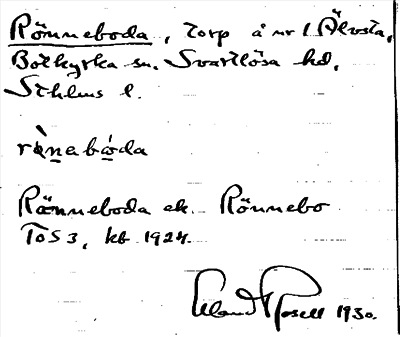 Rönneboda, torp å nr 1 Älvsta,
Botkyrka sn. Svartlösa hd,
Sthlms l.
rönebòda
Rönneboda ek. Rönnebo
ToS 3, kb 1924.
Erland Rosell 1930.